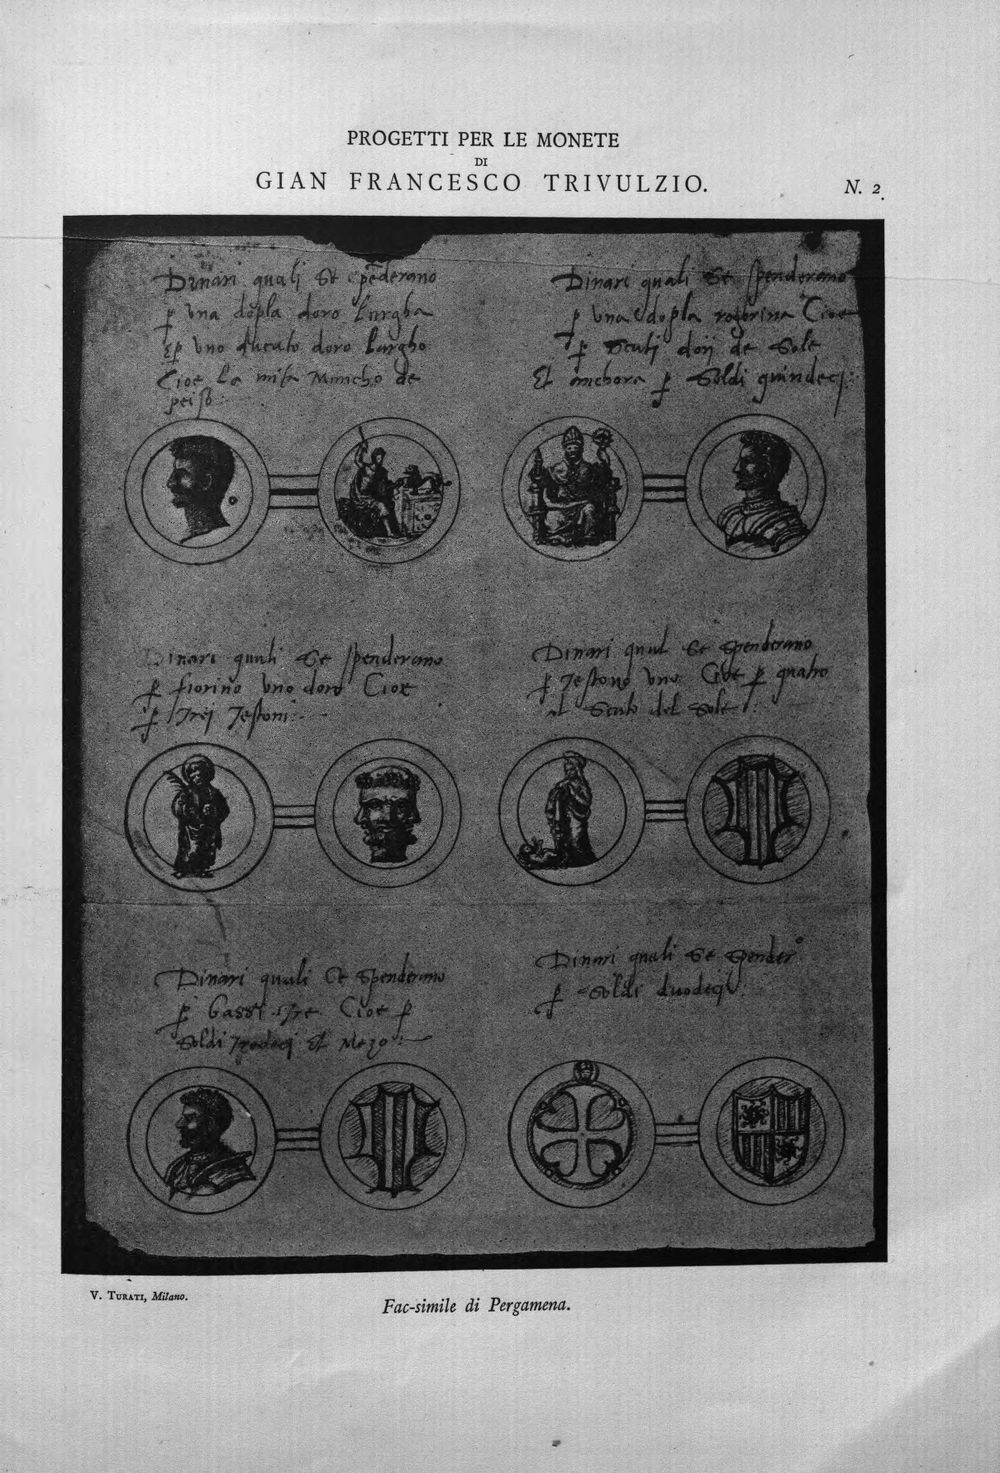 PROGETTI PER LE MONETE
DI
GIAN FRANCESCO TRIVULZIO.
N. 2.
Dinari quali Se spēderano
p̱ una dopla doro Largha
Et p̱ uno ducato doro Largho
Cioe La Mancho de
peiso
Dinari quali Se spenderano
p̱ una dopla Cioe
p̱ Scuti dorj de Sole
Et anchora p̱ Soldi quindecj
Dinari quali Se spenderano
p̱ fiorino uno doro Cioe
p̱ Trej Testoni
Dinari quali Se spenderano
p̱ Testono uno Cioe p̱ quatro
al Scuto del Sole
Dinari quali Ce Spenderano
p̱ Gassi Tre Cioe p̱
Soldi Tredecj Et Mezo
Dinari quali Se Spender°
p̱ Soldi duodecj
V. TURATI, Milano.
Fac-simile di Pergamena.